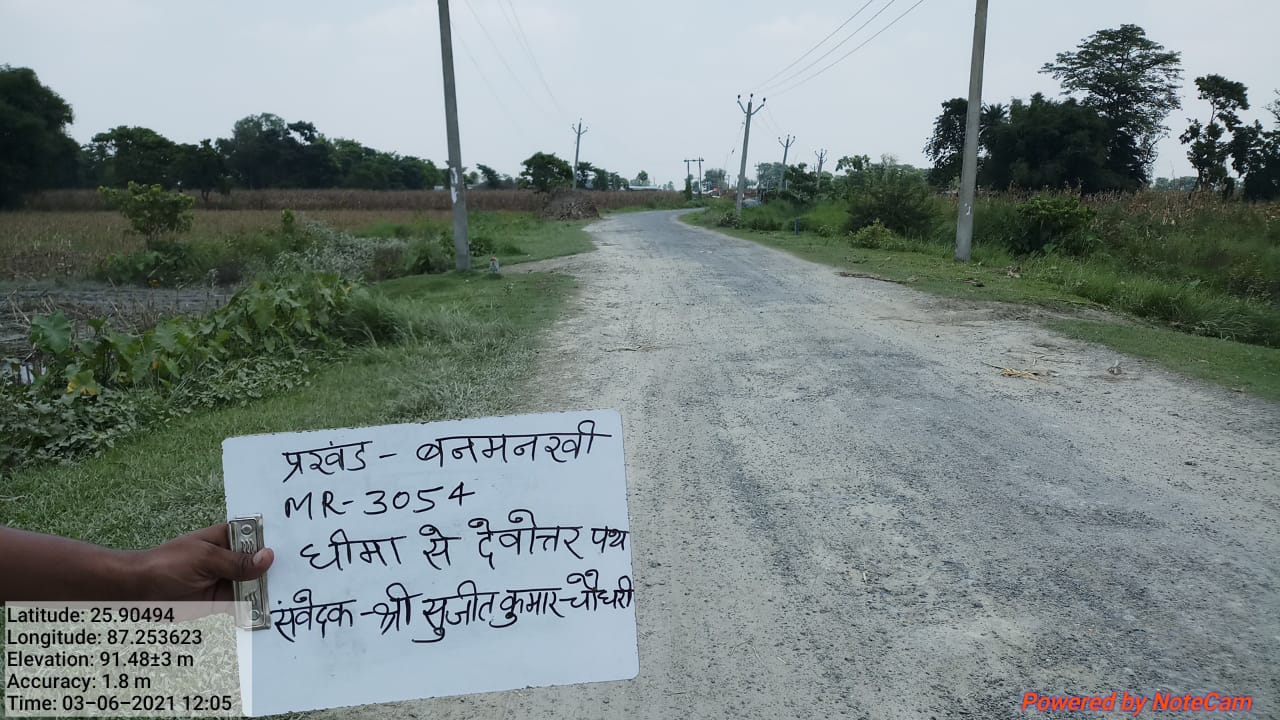 प्रखंड - बनमनखी
MR-3054
धीमा से देवोत्तर पथ
संवेदक - श्री सुजीत कुमार चौधरी
Latitude: 25.90494
Longitude: 87.253623
Elevation: 91.48±3 m
Accuracy: 1.8 m
Time: 03-06-2021 12:05
Powered by NoteCam